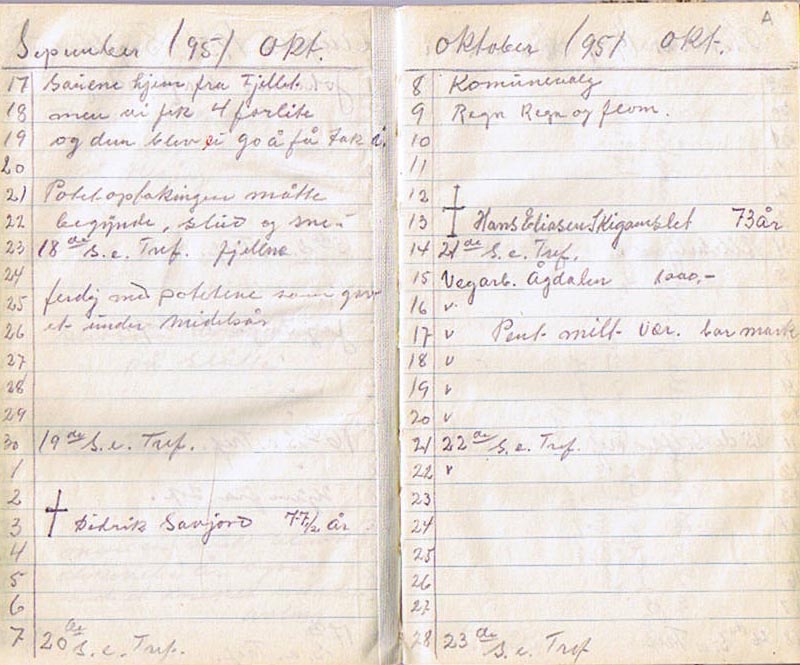 September 1951 Okt.
17 Sauene hjem fra Fjellet
18 men vi fik 4 forlite
19 og dem blev ei go å få tak i.
20
21 Potetoptakingen måtte
22 begynde, slud og sne i
23 18de S. e. Tref. fjellene
24
25 ferdig med potetene som gav
26 et under midelsår
27
28
29
30 19de S. e. Tref.
1
2
3 † Didrik Savjord 77 1/2 år
4
5
6
7 20de S. e. Tref.
A
Oktober 1951 Okt.
8 Komünevalg
9 Regn Regn og flom.
10
11
12
13 † Hans Eliasen 73 år
14 21de S. e. Tref.
15 Vegarb. Ågdalen 1000,-
16 v
17 v Pent mildt Vær. bar mark
18 v
19 v
20 v
21 22de S. e. Tref.
22 v
23
24
25
26
27
28 23de S. e. Tref